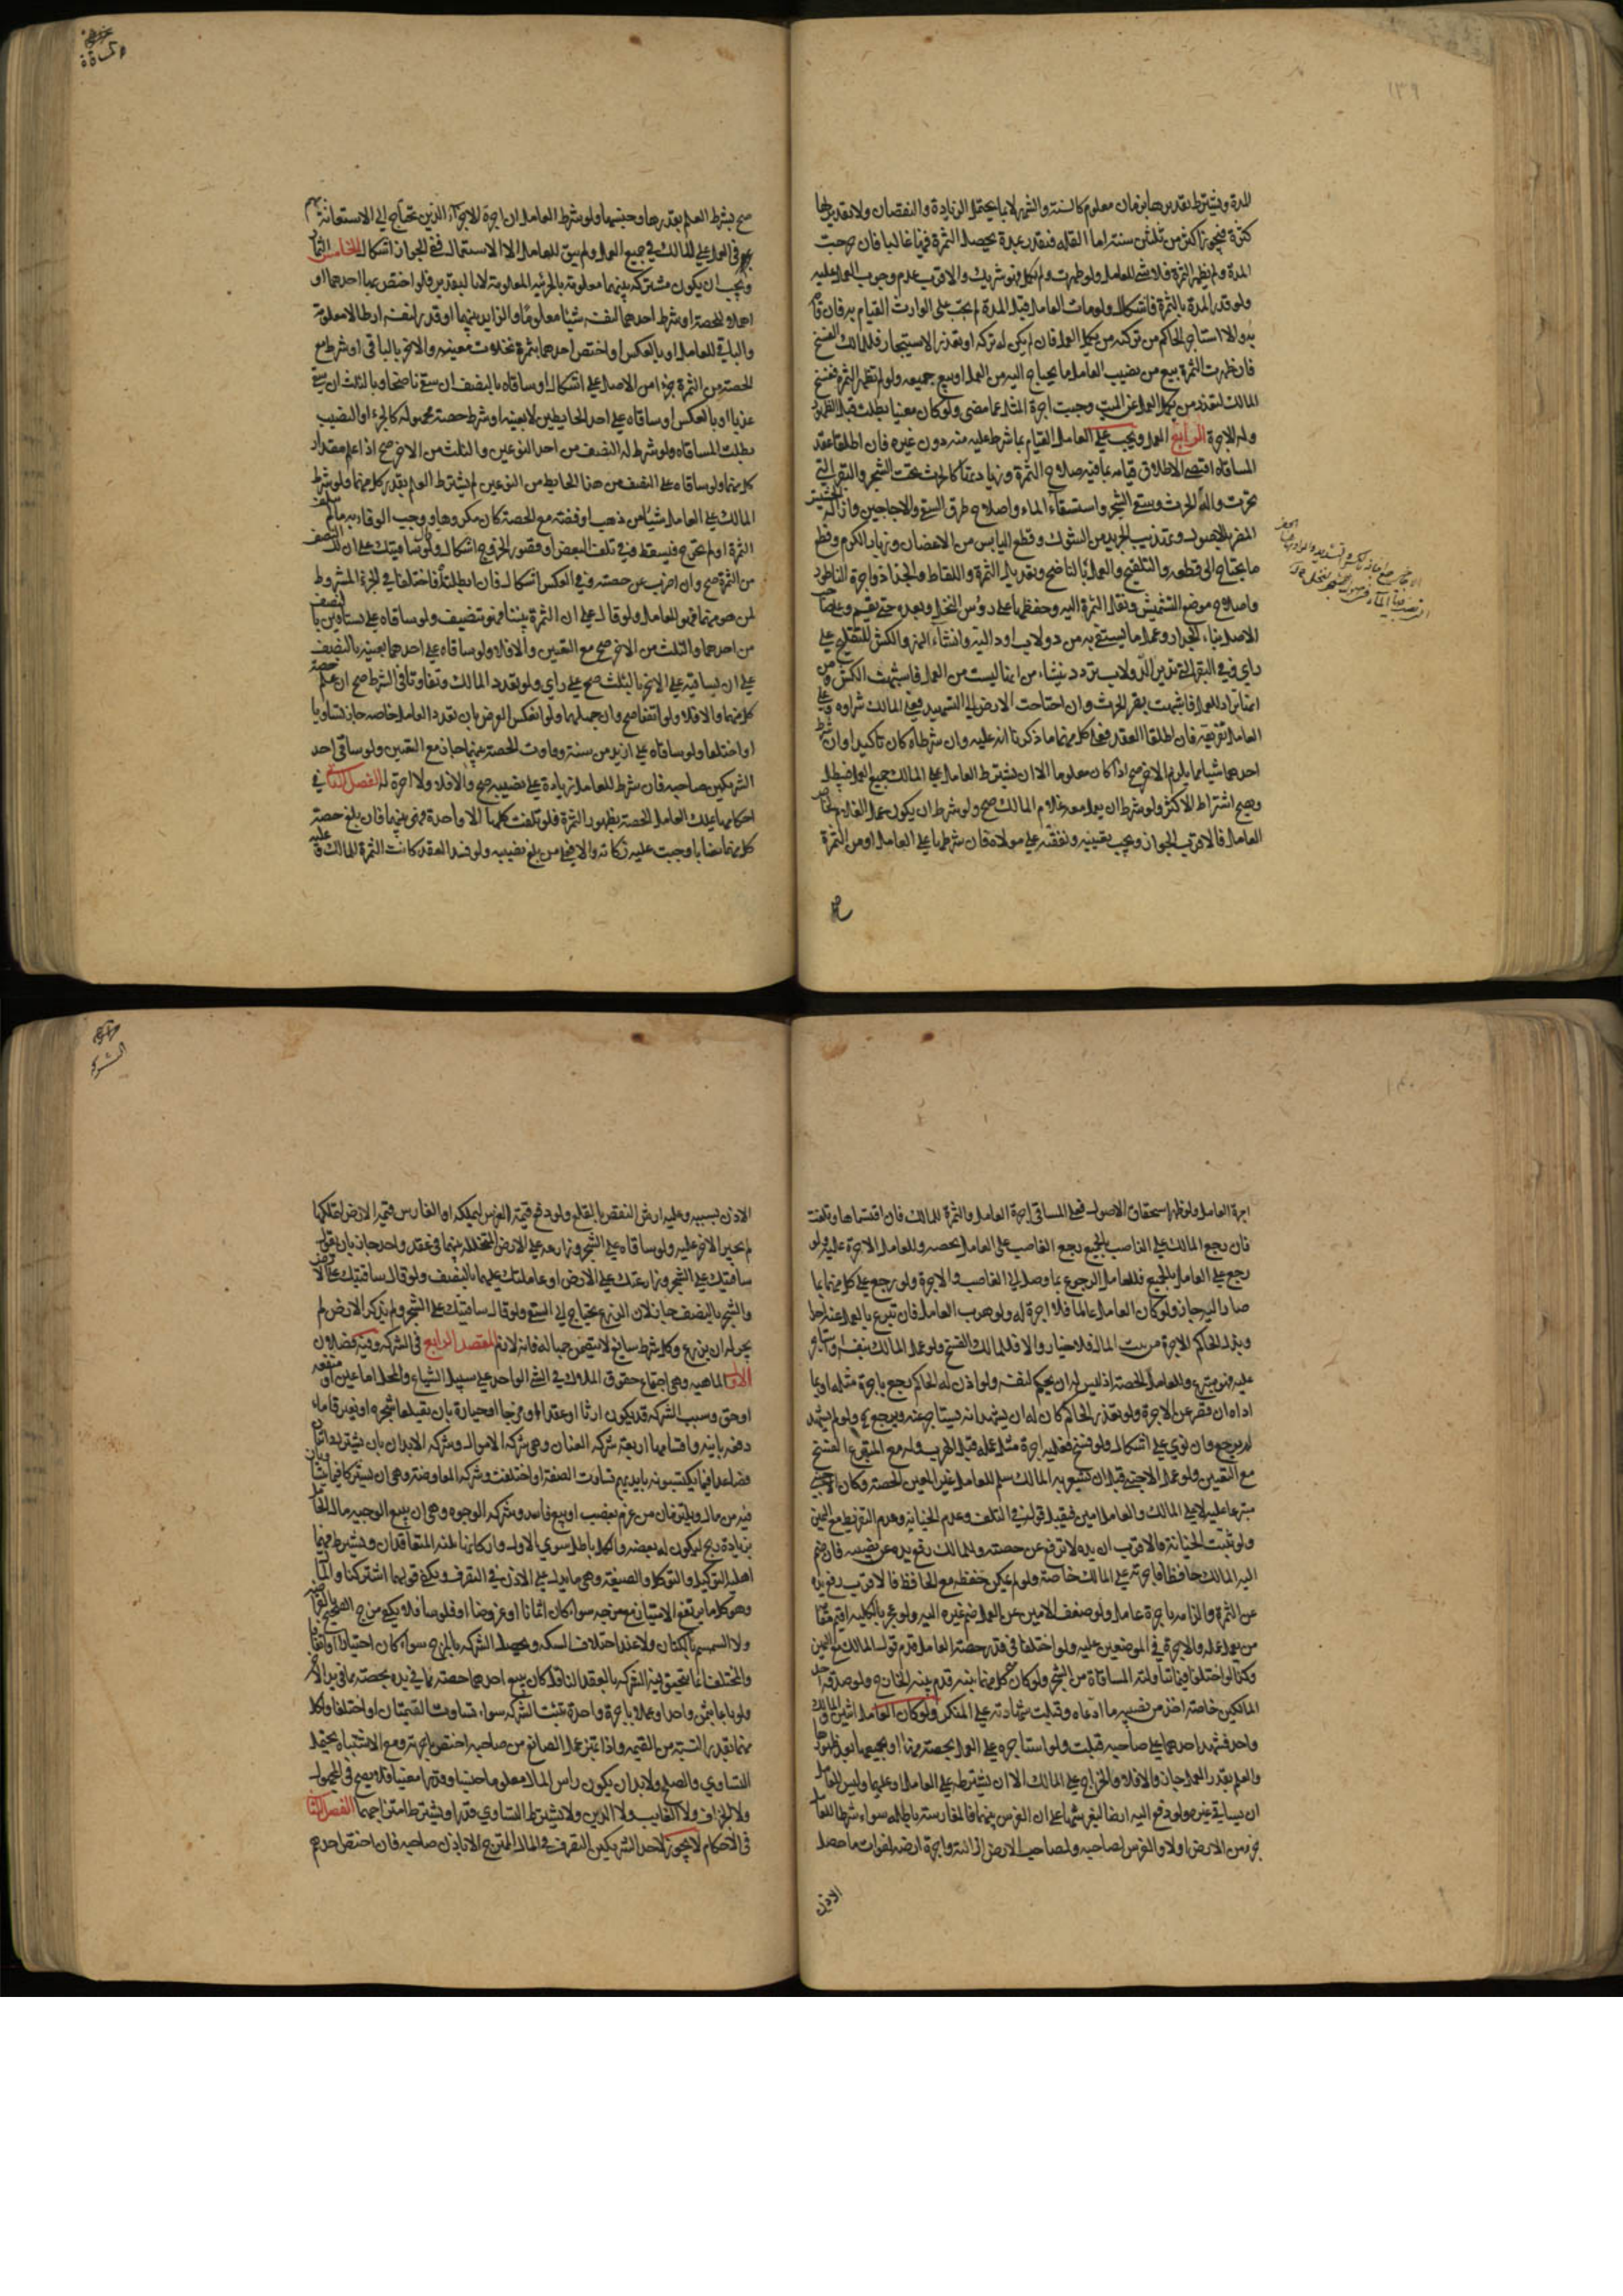 ١٣٩
المدة ويشترط تقديرها بزمان معلوم كالسنة والشهر لا بما يحتمل الزيادة والنقصان ولا تقدير لها
كثرة فيجوز اكثر من ثلثين سنة اما القلة فتقدر بمدة يحصل الثمرة فيها غالبا فان خرجت
المدة ولم يظهر الثمرة فلا شئ للعامل ولو ظهرت ولم يكمل فهو شريك والاقرب عدم وجوب العمل عليه
ولو قدر المدة بالثمرة فاشكال ولو مات العامل قبل المدة لم يجب على الوارث القيام به فان قام
به والا استاجر الحاكم من تركته من يكمل العمل فان لم يكن له تركة او تعذر الاستيجار فللمالك الفسخ
فان ظهرت الثمرة بيع من نصيب العامل ما يحتاج اليه من العمل او بيع جميعه ولو لم تظهر الثمرة ففسخ
المالك لتعذر من يكمل العمل عن الميت وجبت اجرة المثل عما مضى ولو كان معينا بطلت قبل الظهور
وله الاجرة الرابع العمل ويجب على العامل القيام بما شرط عليه منه دون غيره فان اطلقا عقد
المساقاة اقتضى الاطلاق قيامه بما فيه صلاح الثمرة وزيادتها كالحرث تحت الشجر والبقر التي
تحرث وآلة الحرث وسقي الشجر واستسقاء الماء واصلاح طرق السقي والاجاجين وازالة الحشيش
المضر بالاصول وتهذيب الجريد من الشوك وقطع اليابس من الاغصان وزبار الكرم وقطع
ما يحتاج الى قطعه والتلقيح والعمل بالناضح وتعديل الثمرة واللقاط والجذاذ واجرة الناطور
واصلاح موضع التشميس ونقل الثمرة اليه وحفظها على رؤس النخل وبعده حتى يقسم وعلى صاحب
الاصل بناء الجدار وعمل ما يستقى به من دولاب او دالية وانشاء النهر والكش للتلقيح على
راي وفي البقر التي تدير الدولاب تردد ينشاء من انها ليست من العمل فاشبهت الكش ومن
انها تراد للعمل فاشبهت بقر الحرث وان احتاجت الارض الى التسميد فعلى المالك شراوه وعلى
العامل تفريقه فان اطلقا العقد فعلى كل منهما ما ذكرنا انه عليه وان شرطاه كان تاكيدا وان شرط
احدهما شيئا مما يلزم الاخر صح اذا كان معلوما الا ان يشترط العامل على المالك جميع العمل فيبطل
ويصح اشتراط الاكثر ولو شرط ان يعمل معه غلام المالك صح ولو شرط ان يكون عمل الغلام لخاص
العامل فالاقرب الجواز ويجب تعيينه ونفقته على مولاه فان شرطها على العامل او من الثمرة
صح بشرط العلم بقدرها وجنسها ولو شرط العامل ان اجرة الاجراء الذين يحتاج الى الاستعانة بهم
في العمل على المالك في جميع العمل ولم يبق للعامل الا الاستعمال ففي الجواز اشكال الخامس الثمار
ويجب ان يكون مشتركة بينهما معلومة بالجزئية المعلومة لا التقدير فلو اختص بها احدهما او
اهملا الحصة او شرط احدهما لنفسه شيئا معلوما والزايد بينهما او قدر لنفسه ارطالا معلومة
والباقي للعامل او بالعكس او اختص احدهما بثمرة نخلات معينة والاخر بالباقي او شرط مع
الحصة من الثمرة جزءا من الاصل على اشكال او ساقاه بالنصف ان سقى ناضحا وبالثلث ان سقى
عذيا او بالعكس او ساقاه على احد الحايطين لا بعينه او شرط حصة مجهولة كالجزء او النصيب
بطلت المساقاة ولو شرط له النصف من احد النوعين والثلث من الاخر صح اذا علم مقدار
كل منهما ولو ساقاه على النصف من هذا الحايط من النوعين لم يشترط العلم بقدر كل منهما ولو شرط
المالك على العامل شيئا من ذهب او فضة مع الحصة كان مكروها ووجب الوفاء به ما لم تتلف
الثمرة او لم تخرج فيسقط وفي تلف البعض او قصور الخروج اشكال ولو قال ساقيتك على ان لك النصف
من الثمرة صح وان اضرب عن حصته وفي العكس اشكال فان ابطلناه فاختلفا في الجزء المشروط
لمن هو منهما فهو للعامل ولو قال على ان الثمرة بيننا فهو تنصيف ولو ساقاه على بستانين بالنصف
من احدهما والثلث من الاخر صح مع التعيين والا فلا ولو ساقاه على احدهما بعينه بالنصف
على ان يساقيه على الاخر بالثلث صح على راي ولو تعدد المالك وتفاوتا في الشرط صح ان علم حصة
كل منهما والا فلا ولو اتفقا صح وان جهلهما ولو انعكس الفرض بان تعدد العامل خاصة جاز تساويا
او اختلفا ولو ساقاه على ازيد من سنة وفاوت الحصة بينهما جاز مع التعيين ولو ساقى احد
الشريكين صاحبه فان شرط للعامل زيادة على نصيبه صح والا فلا ولا اجرة له الفصل الثاني في
احكامها يملك العامل الحصة بظهور الثمرة فلو تلفت كلها الا واحدة فهي بينهما فان بلغ حصة
كل منهما نصابا وجبت عليه زكاته والا فعلى من بلغ نصيبه ولو فسد العقد كانت الثمرة للمالك وعليه
اجرة العامل ولو ظهر استحقاق الاصول فعلى المساقي اجرة العامل والثمرة للمالك فان اقتسماها وتلفت
فان رجع المالك على الغاصب بالجميع رجع الغاصب على العامل بحصته وللعامل الاجرة عليه ولو
رجع على العامل بالجميع فللعامل الرجوع بما وصل الى الغاصب والاجرة ولو رجع على كل منهما بما
صار اليه جاز ولو كان العامل عالما فلا اجرة له ولو هرب العامل فان تبرع بالعمل عنه احد
وبذل الحاكم الاجرة من بيت المال فلا خيار والا فللمالك الفسخ ولو عمل المالك بنفسه او استاجر
عليه فهو متبرع وللعامل الحصة اذ ليس له ان يحكم لنفسه ولو اذن له الحاكم رجع باجرة مثله او بما
اداه ان قصر عن الاجرة ولو تعذر الحاكم كان له ان يشهد انه يستاجر عنه ويرجع ح ولو لم يشهد
لم يرجع وان نوى على اشكال ولو فسخ فعليه اجرة مثل عمله قبل الهرب وله مع المتبرع الفسخ
مع التعيين ولو عمل الاجنبي قبل ان يشعر به المالك سلم للعامل غير المعين الحصة وكان الاجنبي
متبرعا عليه لا على المالك والعامل امين فيقبل قوله في التلف وعدم الخيانة وعدم التفريط مع اليمين
ولو ثبتت الخيانة فالاقرب ان يده لا ترفع عن حصته وللمالك رفع يده عن نصيبه فان ضم
اليه المالك حافظا فاجرته على المالك خاصة ولو لم يمكن حفظه مع الحافظ فالاقرب رفع يده
عن الثمرة والزامه باجرة عامل ولو ضعف الامين عن العمل ضم غيره اليه ولو عجز بالكلية اقيم مقامه
من يعمل عمله والاجرة في الموضعين عليه ولو اختلفا في قدر حصة العامل قدم قول المالك مع اليمين
وكذا لو اختلفا فيما تناولته المساقاة من الشجر ولو كان مع كل منهما بينة قدم بينة الخارج ولو صدقه احد
المالكين خاصة اخذ من نصيبه ما ادعاه وقبلت شهادته على المنكر ولو كان العامل اثنين والمالك
واحد فشهد احدهما على صاحبه قبلت ولو استاجره على العمل بحصة منها او بجميعها بعد ظهورها
والعلم بقدر العمل جاز والا فلا والخراج على المالك الا ان يشترطه على العامل او عليهما وليس للعامل
ان يساقي غيره ولو دفع اليه ارضا ليغرسها على ان الغرس بينهما فالمغارسة باطلة سواء شرطا للعامل
جزء من الارض او لا والغرس لصاحبه ولصاحب الارض ازالته واجرة ارضه لفوات ما حصل
الاذن
الشركة
الاذن بسببه وعليه ارش النقص بالقلع ولو دفع قيمة الغرس ليملكه او الغارس قيمة الارض ليملكها
لم يجبر الاخر عليه ولو ساقاه على الشجر وزارعه على الارض المتخللة بينها في عقد واحد جاز بان يقول
ساقيتك على الشجر وزارعتك على الارض او عاملتك عليهما بالنصف ولو قال ساقيتك على الارض
والشجر بالنصف جاز لان الزرع يحتاج الى السقي ولو قال ساقيتك على الشجر ولم يذكر الارض لم
يجز له ان يزرع وكل شرط سايغ لا يتضمن جهالة فانه لازم المقصد الرابع في الشركة وفيه فصلان
الاول الماهية وهي اجتماع حقوق الملاك في الشئ الواحد على سبيل الشياع والمحل اما عين او منفعة
او حق وسبب الشركة قد يكون ارثا او عقدا او مزجا او حيازة بان يقتلعا شجرة او يغترفا ماء
دفعة بانية واقسامها اربعة شركة العنان وهي شركة الاموال وشركة الابدان بان يشترك اثنان
فصاعدا فيما يكتسبونه بايديهم تساوت الصنعة او اختلفت وشركة المفاوضة وهي ان يشتركا فيما يتساويان
فيه من مال ويلتزمان من غرم بغصب او بيع فاسد وشركة الوجوه وهي ان يبيع الوجيه مال الخامل
بزيادة ربح ليكون له بعضه والكل باطل سوى الاول واركانها ثلثة المتعاقدان ويشترط فيهما
اهلية التوكيل والتوكل والصيغة وهي ما يدل على الاذن في التصرف ويكفي قولهما اشتركنا والمال
وهو كل ما يرتفع الامتياز مع مزجه سواء كان اثمانا او عروضا او فلوسا فلا يكفي مزج الصحيح بالقراضة
ولا السمسم بالكتان ولا عند اختلاف السكة ويحصل الشركة بالمزج سواء كان اختيارا او اتفاقا
والمختلف انما يتحقق فيه الشركة بالعقد الناقل كان يبيع احدهما حصته مما في يده بحصته مما في يد الاخر
ولو باعا بثمن واحد او عملا باجرة واحدة ثبتت الشركة سواء تساوت القيمتان او اختلفا ولكل
منهما بقدر النسبة من القيمة واذا تميز عمل الصانع من صاحبه اختص باجرته ومع الاشتباه يحتمل
التساوي والصلح ولا بد ان يكون راس المال معلوما جنسا وقدرا معينا فلا يصح في المجهول
ولا الجزاف ولا الغايب ولا الدين ولا يشترط التساوي قدرا ويشترط امتزاجهما الفصل الثاني
في الاحكام لا يجوز لاحد الشريكين التصرف في المال الممتزج الا باذن صاحبه فان اختص احدهم